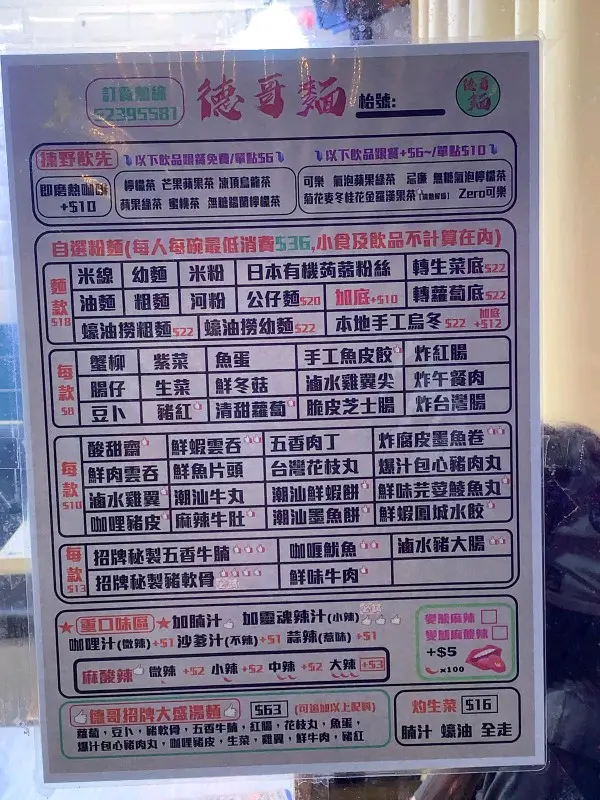 訂食熱線
52395581
德哥麵
枱號:
德哥
麵
揀野飲先
以下飲品跟餐免費/單點$6
以下飲品跟餐+$6~/單點$10
即磨熱咖啡
+$10
檸檬茶 芒果蘋果茶 凍頂烏龍茶
蘋果綠茶 蜜桃茶 無糖錫蘭檸檬茶
可樂 氣泡蘋果綠茶 忌廉 無糖氣泡檸檬茶
菊花麥冬桂花金羅漢果茶 Zero可樂
自選粉麵(每人每碗最低消費$36,小食及飲品不計算在內)
麵款
$18
米線 幼麵 米粉 日本有機蒟蒻粉絲 轉生菜底$22
油麵 粗麵 河粉 公仔麵$20 加底+$10 轉蘿蔔底$22
蠔油撈粗麵$22 蠔油撈幼麵$22 本地手工烏冬$22 加底+$12
每款
$8
蟹柳 紫菜 魚蛋 手工魚皮餃 炸紅腸
腸仔 生菜 鮮冬菇 滷水雞翼尖 炸午餐肉
豆卜 豬紅 清甜蘿蔔 脆皮芝士腸 炸台灣腸
每款
$10
酸甜齋 鮮蝦雲吞 五香肉丁 炸腐皮墨魚卷
鮮肉雲吞 鮮魚片頭 台灣花枝丸 爆汁包心豬肉丸
滷水雞翼 潮汕牛丸 潮汕鮮蝦餅 鮮味芫荽鯪魚丸
咖哩豬皮 麻辣牛肚 潮汕墨魚餅 鮮蝦鳳城水餃
每款
$13
招牌秘製五香牛腩 咖喱魷魚 滷水豬大腸
招牌秘製豬軟骨 鮮味牛肉
重口味區
加腩汁 加靈魂辣汁(小辣)
咖哩汁(微辣)+$1 沙爹汁(不辣)+$1 蒜辣(惹味)+$1
麻酸辣 微辣 +$2 小辣 +$2 中辣 +$2 大辣 +$3
變酸麻辣
變態麻酸辣
+$5
x100
德哥招牌大盛湯麵 $63 (可追加以上配料)
蘿蔔，豆卜，豬軟骨，五香牛腩，紅腸，花枝丸，魚蛋，
爆汁包心豬肉丸，咖哩豬皮，生菜，雞翼，鮮牛肉，豬紅
灼生菜 $16
腩汁 蠔油 全走